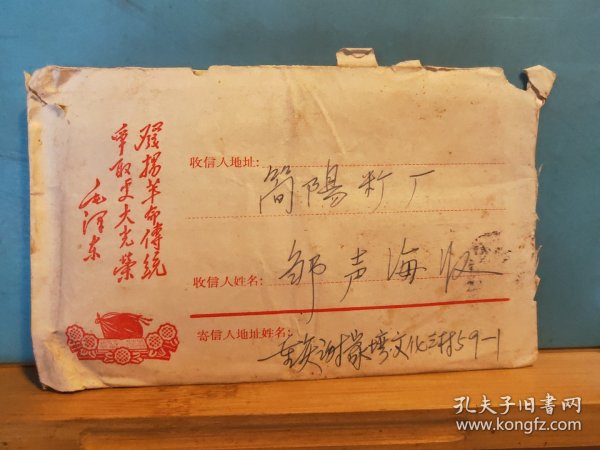 發揚革命傳統
爭取更大光榮
毛澤东
收信人地址:
简陽 厂
收信人姓名:
邹声海收
寄信人地址姓名:
重庆沙 文化三村59-1
孔夫子旧书网
www.kongfz.com